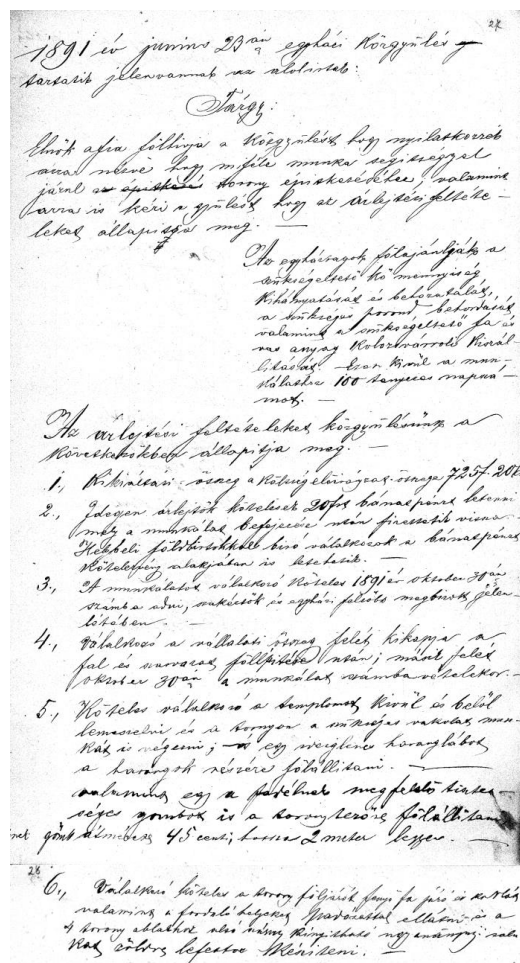 27
1891 év junius 23án egyházi Közgyülés
tartatik jelenvannak az alolirtak:
Tárgy:
Elnök afia fölhivja a Közgyülést hogy nyilatkozzék
arra nézve hogy miféle munka segitséggel
járul a torony épitkezéséhez, valamint
arra is kéri a gyülést hogy az árlejtési feltéte-
leket állapitja meg. —
Az egyháztagok fölajánlják a
szükségeltető kő mennyiség
kihányatását és behozatalát,
a szükséges porond behordását
valamint a szükségeltető fa és
vas anyag Kolozsvárroli kiszál-
litását. Ezen kivül a mun-
kálathoz 100 tenyeres napszá-
mot. —
Az árlejtési feltételeket közgyülésünk a
következőkben állapitja meg. —
1., Kikiáltási összeg a költség előirányzat összege 725f. 20k
2., Idegen árlejtők kötelesek 20frt bánatpénzt letenni
mely a munkálat befejezése után fizettetik vissza.
Hekbeli földbirtokkal biró vállalkozok a bánatpénzt
kötelezvény alakjában is letehetik. —
3., A munkálatot vállalkozó köteles 1891 év oktober 30án
számba adni, szakértők és egyházi felsőbb megbizott jelen-
létében. —
4., Vállalkozó a vállalati összeg felét kikapja a
fal és fölépitése után; másik felét
oktober 30án a munkálat számbavételekor. —
5., Köteles vállalkozó a templomot kivül és belől
lemeszelni és a tornyon a szükséges vakolat mun-
kát is végezni; egy haranglábot
a harangok részére fölállitani. —
valamint egy a fedélnek megfelelő tisztes-
séges gombot is a toronytetőre fölállitani
gömb átmérete 45 centi, hossza 2 meter legyen. —
28
6., Vállalkozó köteles a torony följárót fenyő fa járó és
valamint a forduló helyeket padozattal ellátni és a
torony ablakot alsó része
zöldre lefestve késziteni. —